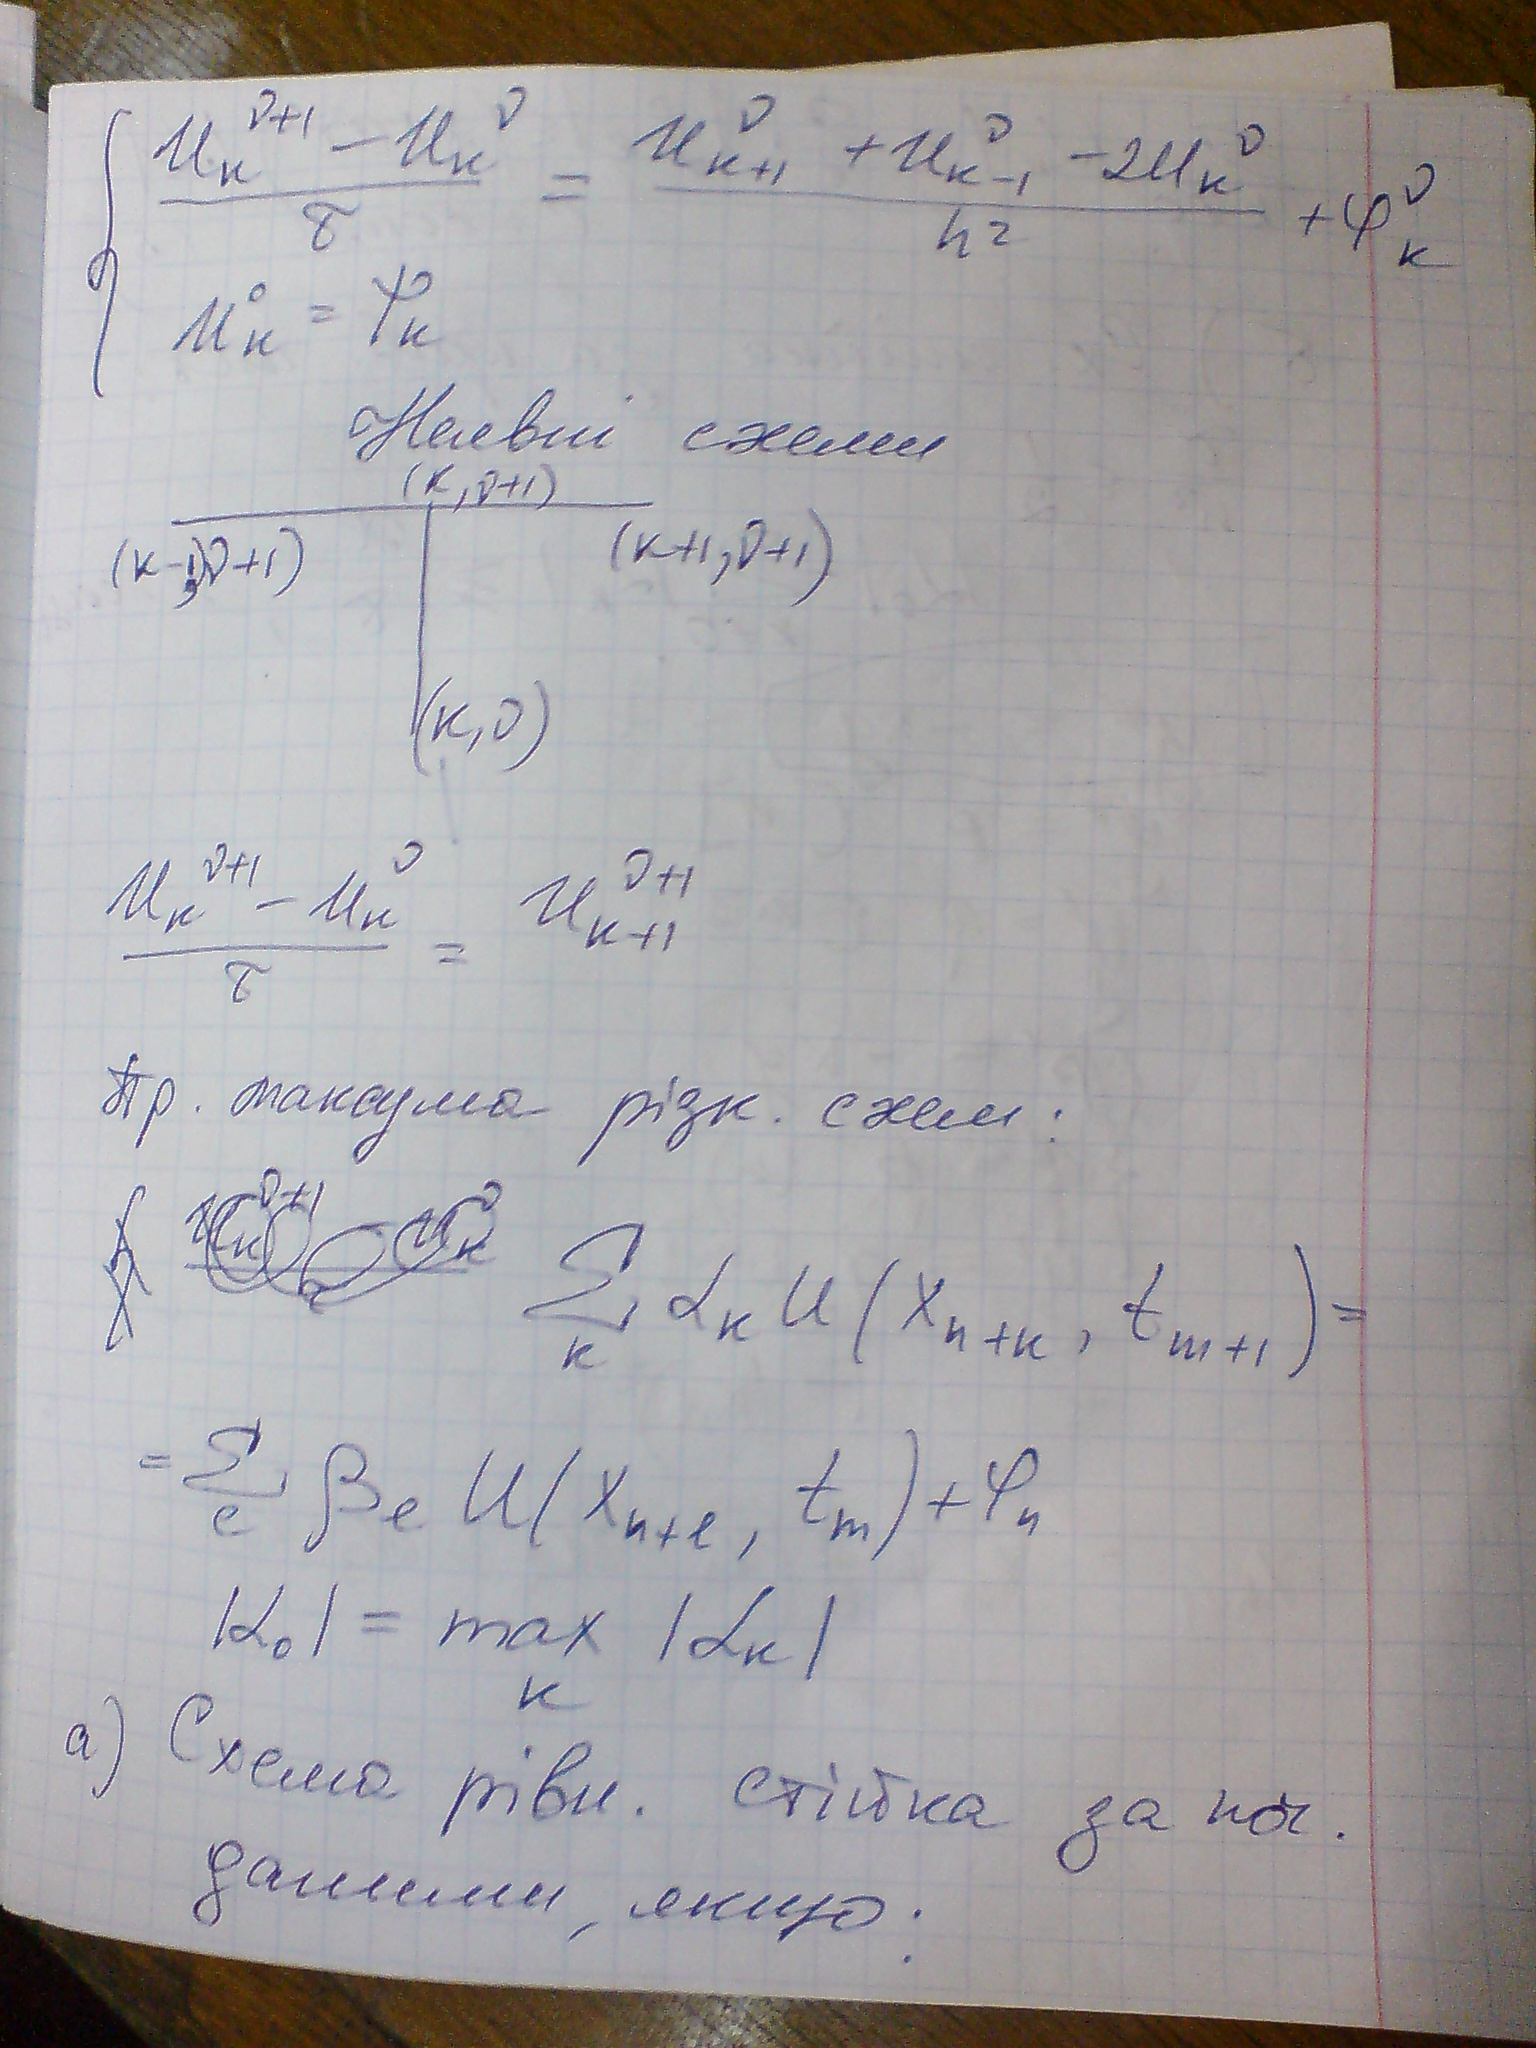 { (u_k^{ν+1} - u_k^ν)/τ = (u_{k+1}^ν + u_{k-1}^ν - 2u_k^ν)/h² + φ_k^ν
u_k^0 = ψ_k
Неявні схеми
(k, ν+1)
(k-1, ν+1) (k+1, ν+1)
(k, ν)
(u_k^{ν+1} - u_k^ν)/τ = u_{k+1}^{ν+1}
Пр. максума різн. схем:
Σ_k α_k u(x_{n+k}, t_{m+1}) =
= Σ_e β_e u(x_{n+e}, t_m) + φ_n
|α_0| = max_k |α_k|
а) Схема рівн. стійка за поч.
даними, якщо: